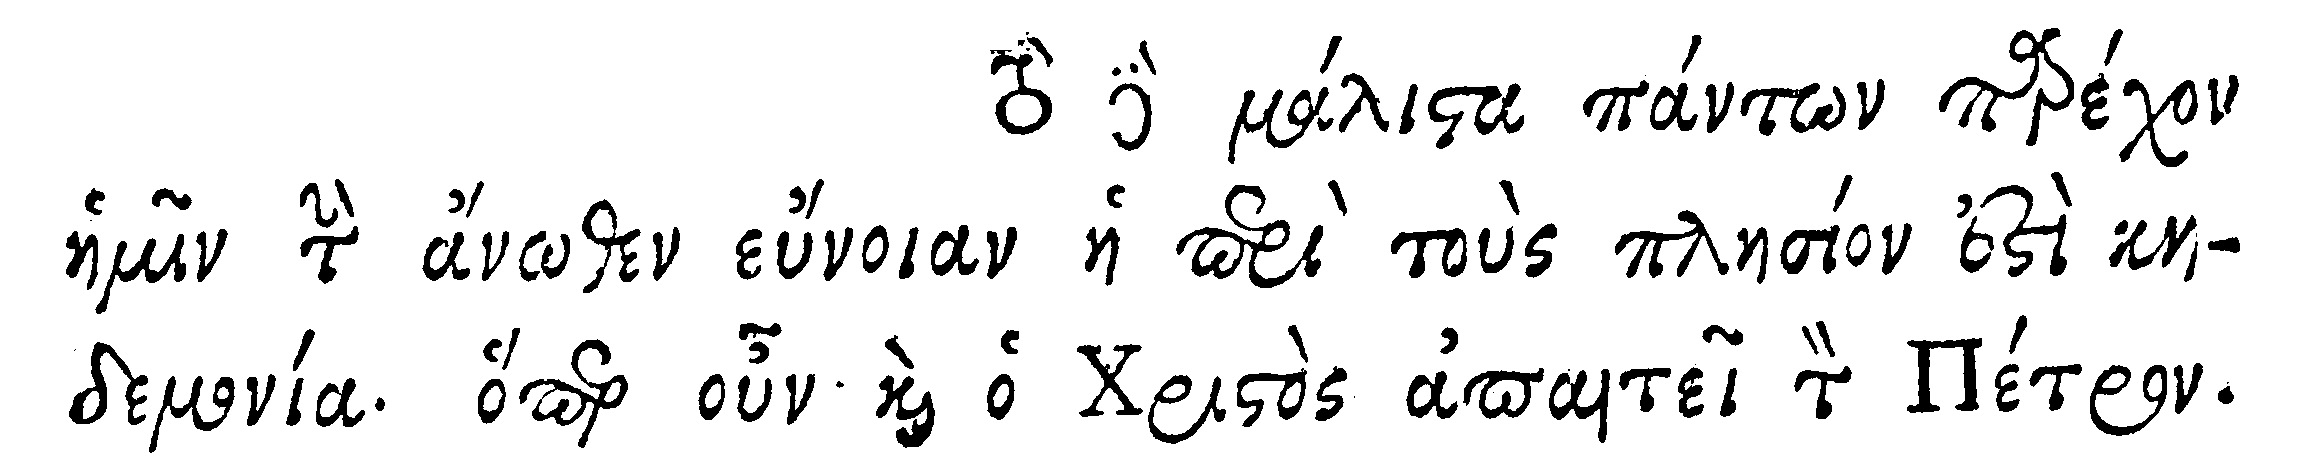 τὸ γὰρ μάλιστα πάντων παρέχον
ἡμῖν τὴν ἄνωθεν εὔνοιαν ἡ περὶ τοὺς πλησίον ἐστὶ κη-
δεμονία. ὅπερ οὖν καὶ ὁ Χριστὸς ἀπαιτεῖ τὸν Πέτρον.